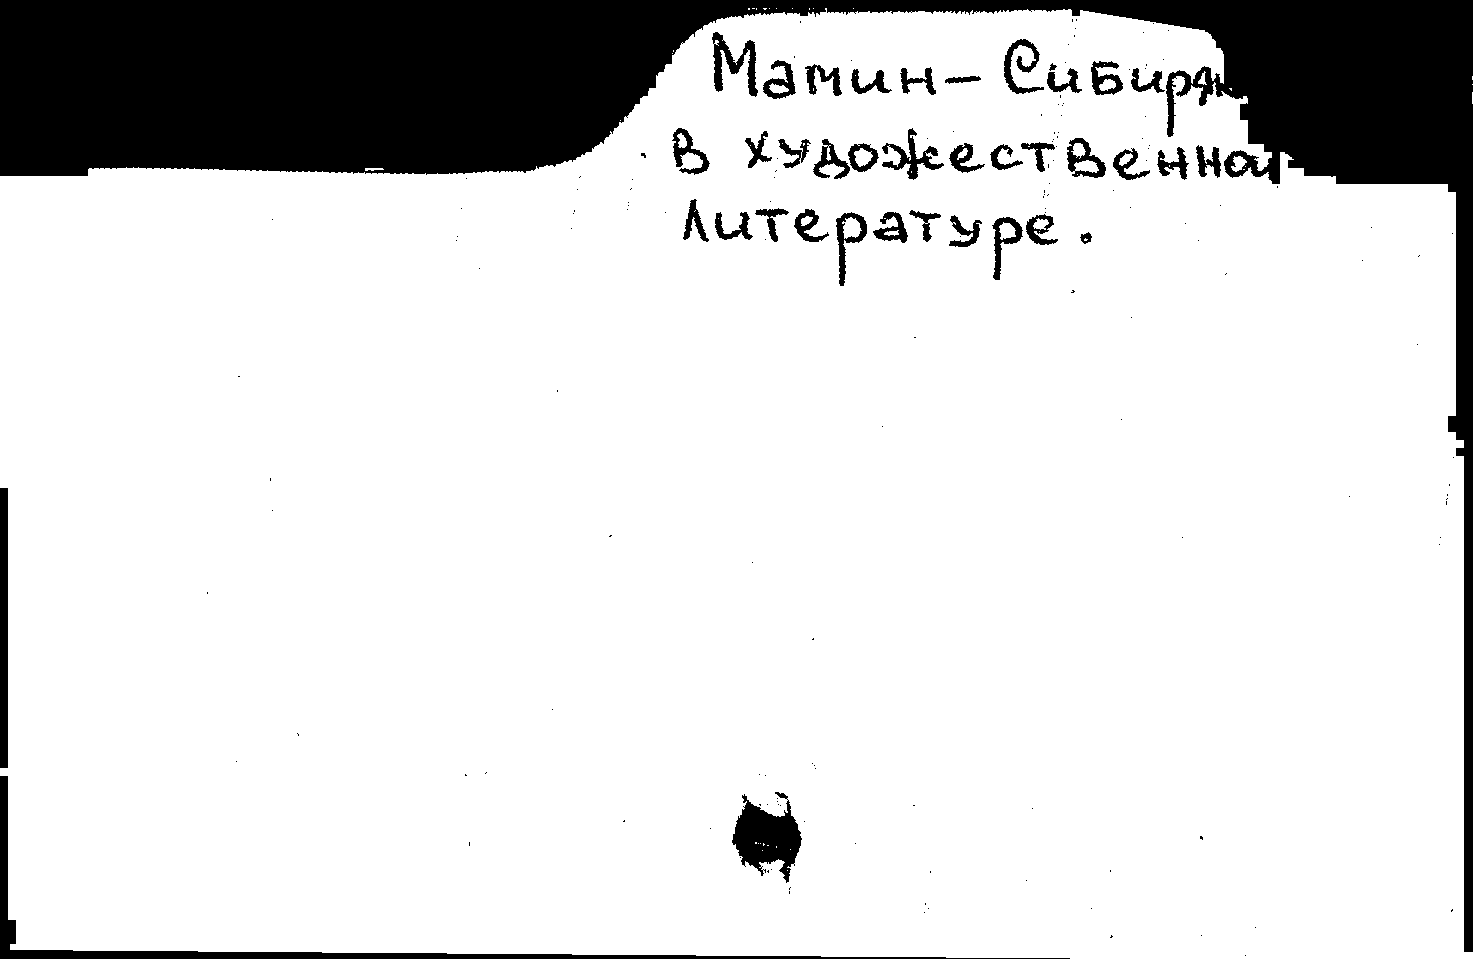 Мамин-Сибиряк
в художественной
литературе.